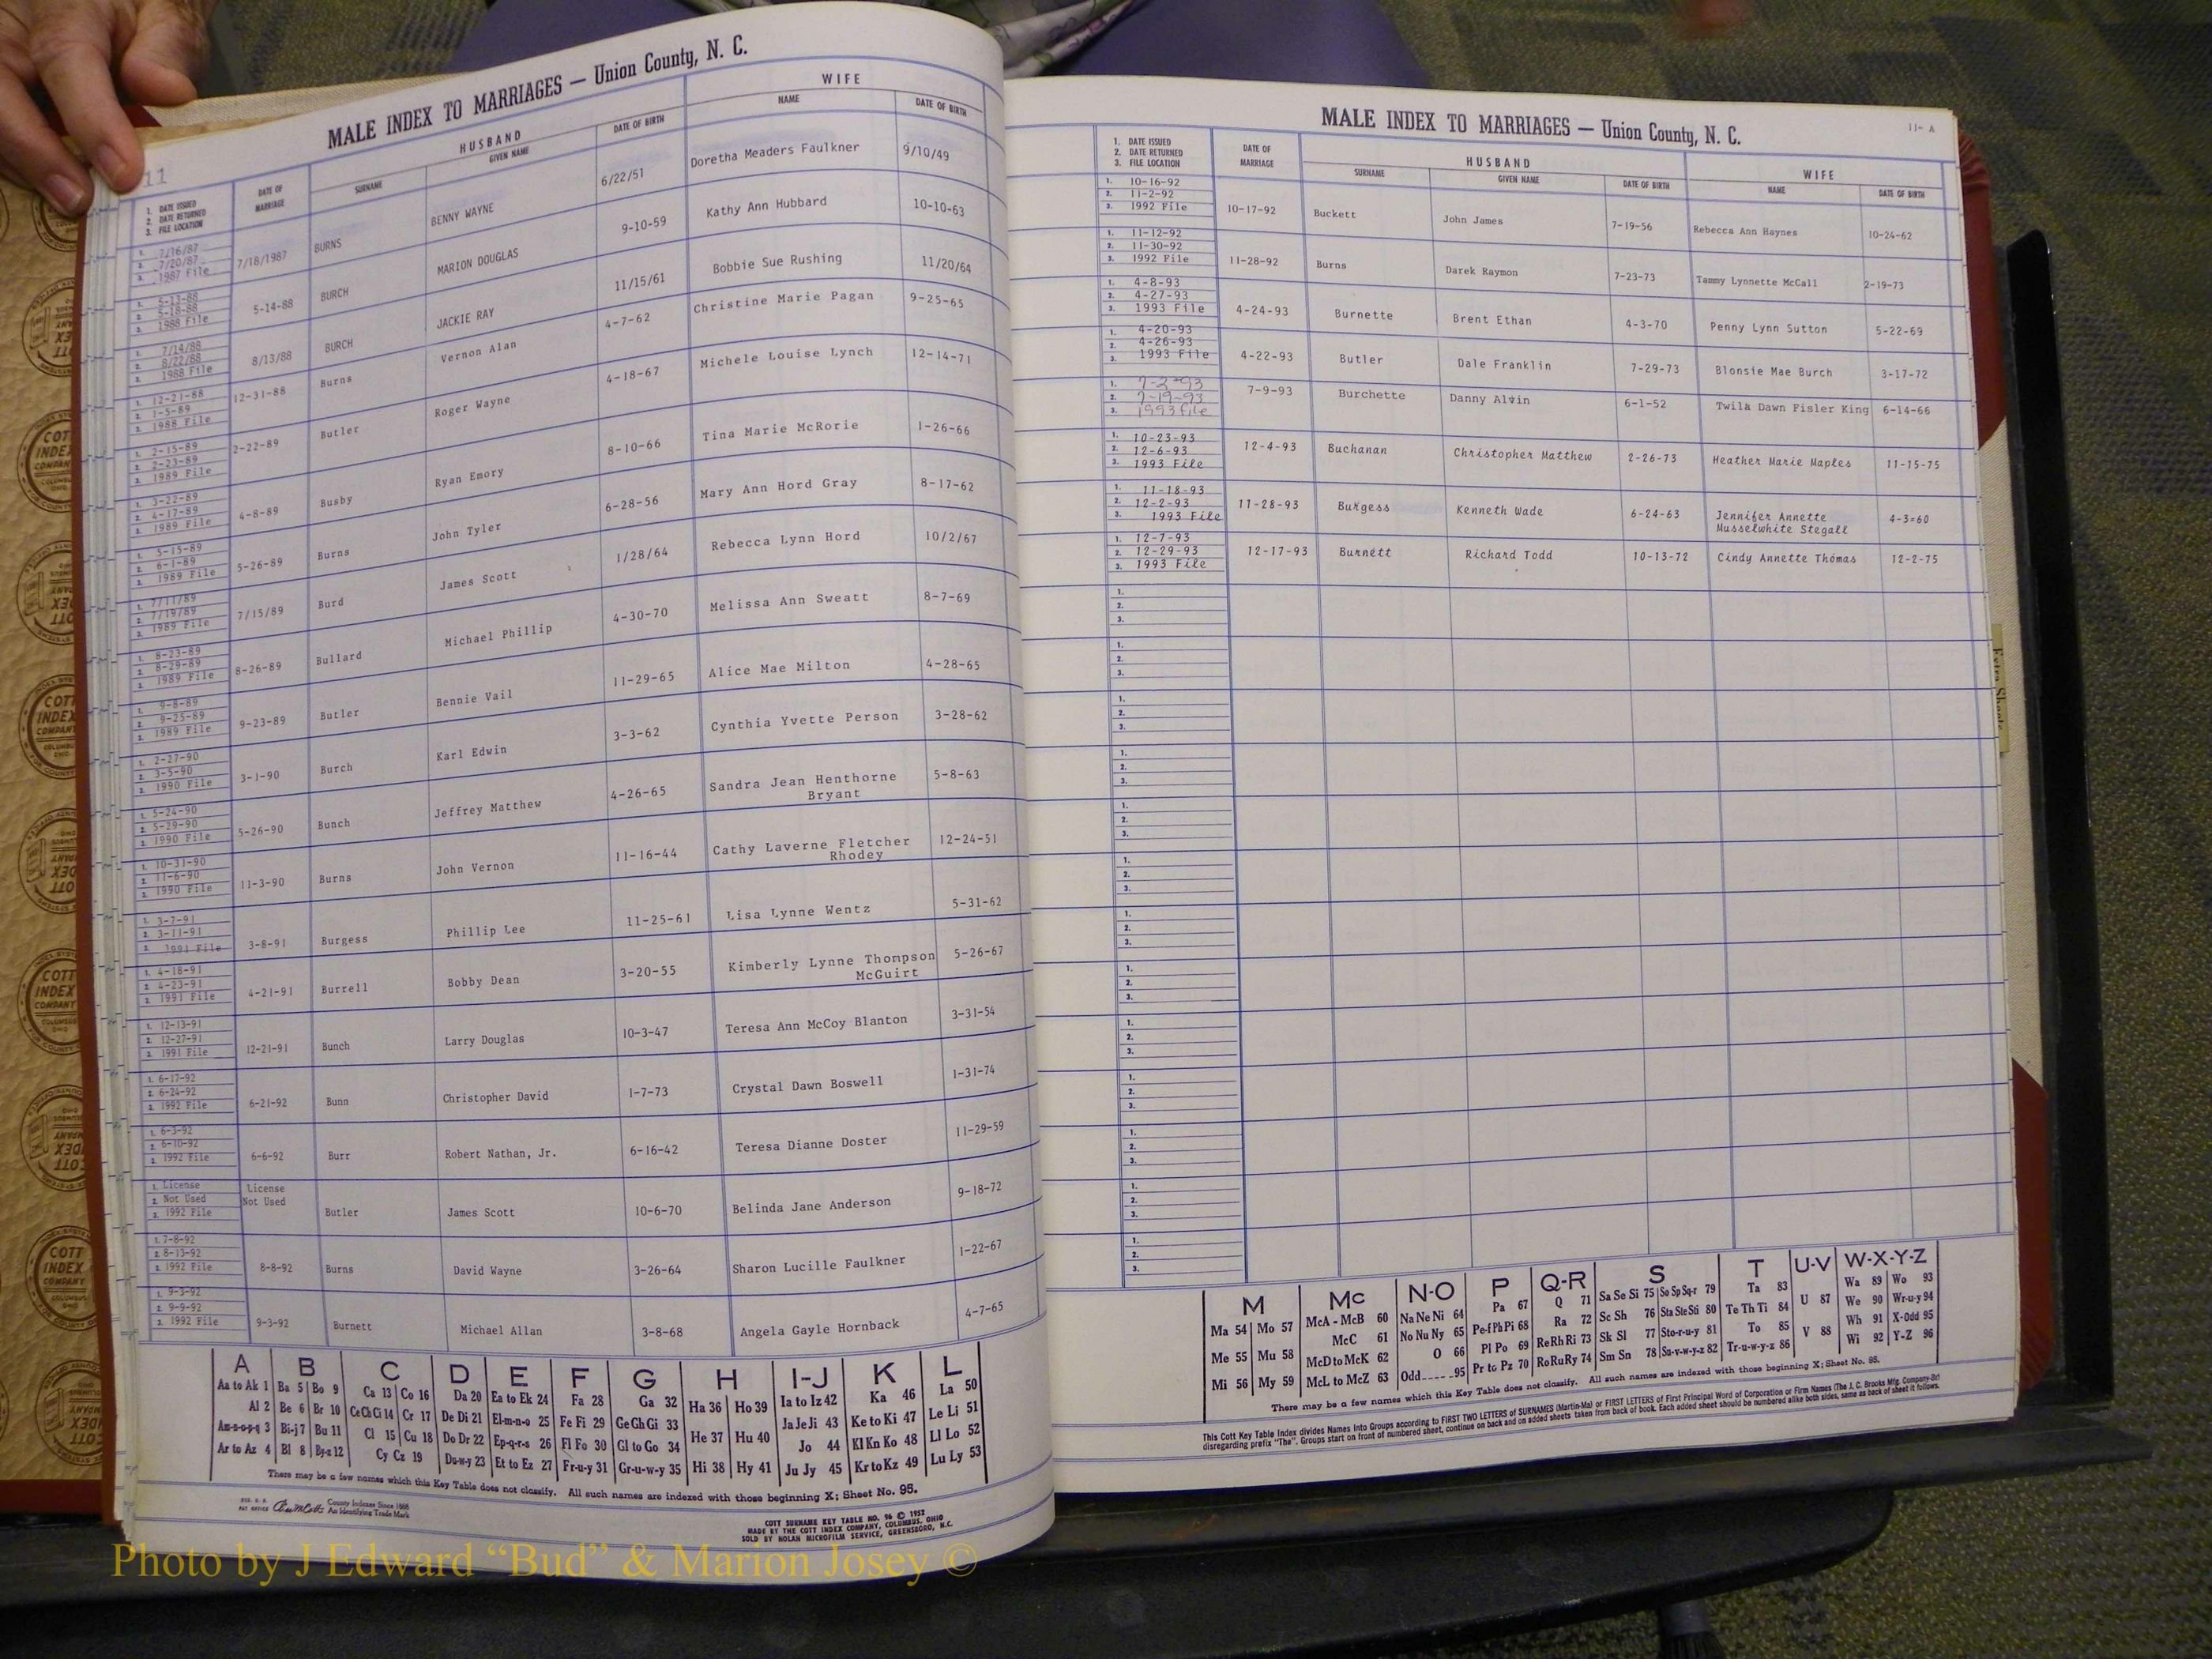 11
MALE INDEX TO MARRIAGES — Union County, N. C.
1. DATE ISSUED 2. DATE RETURNED 3. FILE LOCATION
DATE OF MARRIAGE
HUSBAND
SURNAME GIVEN NAME DATE OF BIRTH
WIFE
NAME DATE OF BIRTH
1. 7/16/87 2. 7/20/87 3. 1987 File 7/18/1987 BURNS BENNY WAYNE 6/22/51 Doretha Meaders Faulkner 9/10/49
1. 5-13-88 2. 5-18-88 3. 1988 File 5-14-88 BURCH MARION DOUGLAS 9-10-59 Kathy Ann Hubbard 10-10-63
1. 7/14/88 2. 8/22/88 3. 1988 File 8/13/88 BURCH JACKIE RAY 11/15/61 Bobbie Sue Rushing 11/20/64
1. 12-21-88 2. 1-5-89 3. 1988 File 12-31-88 Burns Vernon Alan 4-7-62 Christine Marie Pagan 9-25-65
1. 2-15-89 2. 2-23-89 3. 1989 File 2-22-89 Butler Roger Wayne 4-18-67 Michele Louise Lynch 12-14-71
1. 3-22-89 2. 4-17-89 3. 1989 File 4-8-89 Busby Ryan Emory 8-10-66 Tina Marie McRorie 1-26-66
1. 5-15-89 2. 6-1-89 3. 1989 File 5-26-89 Burns John Tyler 6-28-56 Mary Ann Hord Gray 8-17-62
1. 7/11/89 2. 7/19/89 3. 1989 File 7/15/89 Burd James Scott 1/28/64 Rebecca Lynn Hord 10/2/67
1. 8-23-89 2. 8-29-89 3. 1989 File 8-26-89 Bullard Michael Phillip 4-30-70 Melissa Ann Sweatt 8-7-69
1. 9-8-89 2. 9-25-89 3. 1989 File 9-23-89 Butler Bennie Vail 11-29-65 Alice Mae Milton 4-28-65
1. 2-27-90 2. 3-5-90 3. 1990 File 3-1-90 Burch Karl Edwin 3-3-62 Cynthia Yvette Person 3-28-62
1. 5-24-90 2. 5-29-90 3. 1990 File 5-26-90 Bunch Jeffrey Matthew 4-26-65 Sandra Jean Henthorne Bryant 5-8-63
1. 10-31-90 2. 11-6-90 3. 1990 File 11-3-90 Burns John Vernon 11-16-44 Cathy Laverne Fletcher Rhodey 12-24-51
1. 3-7-91 2. 3-11-91 3. 1991 File 3-8-91 Burgess Phillip Lee 11-25-61 Lisa Lynne Wentz 5-31-62
1. 4-18-91 2. 4-23-91 3. 1991 File 4-21-91 Burrell Bobby Dean 3-20-55 Kimberly Lynne Thompson McGuirt 5-26-67
1. 12-13-91 2. 12-27-91 3. 1991 File 12-21-91 Bunch Larry Douglas 10-3-47 Teresa Ann McCoy Blanton 3-31-54
1. 6-17-92 2. 6-24-92 3. 1992 File 6-21-92 Bunn Christopher David 1-7-73 Crystal Dawn Boswell 1-31-74
1. 6-3-92 2. 6-10-92 3. 1992 File 6-6-92 Burr Robert Nathan, Jr. 6-16-42 Teresa Dianne Doster 11-29-59
1. License 2. Not Used 3. 1992 File License Not Used Butler James Scott 10-6-70 Belinda Jane Anderson 9-18-72
1. 7-8-92 2. 8-13-92 3. 1992 File 8-8-92 Burns David Wayne 3-26-64 Sharon Lucille Faulkner 1-22-67
1. 9-3-92 2. 9-9-92 3. 1992 File 9-3-92 Burnett Michael Allan 3-8-68 Angela Gayle Hornback 4-7-65
A B C D E F G H I-J K L
Aa to Ak 1 Ba 5 Bo 9 Ca 13 Co 16 Da 20 Ea to Ek 24 Fa 28 Ga 32 Ha 36 Ho 39 Ia to Iz 42 Ka 46 La 50
Al 2 Be 6 Br 10 Ce Ch Ci 14 Cr 17 De Di 21 El-m-n-o 25 Fe Fi 29 Ge Gh Gi 33 He 37 Hu 40 Ja Je Ji 43 Ke to Ki 47 Le Li 51
Am-n-o-p-q 3 Bi-j 7 Bu 11 Cl 15 Cu 18 Do Dr 22 Ep-q-r-s 26 Fl Fo 30 Gl to Go 34 Hi 38 Hy 41 Jo 44 Kl Kn Ko 48 Ll Lo 52
Ar to Az 4 Bl 8 By-z 12 Cy Cz 19 Du-w-y 23 Et to Ez 27 Fr-u-y 31 Gr-u-w-y 35 Ju Jy 45 Kr to Kz 49 Lu Ly 53
There may be a few names which this Key Table does not classify. All such names are indexed with those beginning X; Sheet No. 95.
County Indexes Since 1888
An Identifying Trade Mark
COTT SURNAME KEY TABLE NO. 96 © 1952
MADE BY THE COTT INDEX COMPANY, COLUMBUS, OHIO
SOLD BY NOLAN MICROFILM SERVICE, GREENSBORO, N.C.
11- A
MALE INDEX TO MARRIAGES — Union County, N. C.
1. DATE ISSUED 2. DATE RETURNED 3. FILE LOCATION
DATE OF MARRIAGE
HUSBAND
SURNAME GIVEN NAME DATE OF BIRTH
WIFE
NAME DATE OF BIRTH
1. 10-16-92 2. 11-2-92 3. 1992 File 10-17-92 Buckett John James 7-19-56 Rebecca Ann Haynes 10-24-62
1. 11-12-92 2. 11-30-92 3. 1992 File 11-28-92 Burns Darek Raymon 7-23-73 Tammy Lynnette McCall 2-19-73
1. 4-8-93 2. 4-27-93 3. 1993 File 4-24-93 Burnette Brent Ethan 4-3-70 Penny Lynn Sutton 5-22-69
1. 4-20-93 2. 4-26-93 3. 1993 File 4-22-93 Butler Dale Franklin 7-29-73 Blonsie Mae Burch 3-17-72
1. 7-2-93 2. 7-19-93 3. 1993 File 7-9-93 Burchette Danny Alvin 6-1-52 Twila Dawn Fisler King 6-14-66
1. 10-23-93 2. 12-6-93 3. 1993 File 12-4-93 Buchanan Christopher Matthew 2-26-73 Heather Marie Maples 11-15-75
1. 11-18-93 2. 12-2-93 3. 1993 File 11-28-93 Burgess Kenneth Wade 6-24-63 Jennifer Annette Musselwhite Stegall 4-3-60
1. 12-7-93 2. 12-29-93 3. 1993 File 12-17-93 Burnett Richard Todd 10-13-72 Cindy Annette Thomas 12-2-75
1. 2. 3.
1. 2. 3.
1. 2. 3.
1. 2. 3.
1. 2. 3.
1. 2. 3.
1. 2. 3.
1. 2. 3.
1. 2. 3.
1. 2. 3.
1. 2. 3.
1. 2. 3.
1. 2. 3.
M Mc N-O P Q-R S T U-V W-X-Y-Z
Ma 54 Mo 57 McA - McB 60 Na Ne Ni 64 Pa 67 Q 71 Sa Se Si 75 So Sp Sq-r 79 Ta 83 U 87 Wa 89 Wo 93
Me 55 Mu 58 McC 61 No Nu Ny 65 Pe-f Ph Pi 68 Ra 72 Sc Sh 76 Sta Ste Sti 80 Te Th Ti 84 V 88 We 90 Wr-u-y 94
Mi 56 My 59 McD to McK 62 O 66 Pl Po 69 Re Rh Ri 73 Sk Sl 77 Sto-r-u-y 81 To 85 Wh 91 X-Odd 95
McL to McZ 63 Odd 95 Pr to Pz 70 Ro Ru Ry 74 Sm Sn 78 Su-v-w-y-z 82 Tr-u-w-y-z 86 Wi 92 Y-Z 96
There may be a few names which this Key Table does not classify. All such names are indexed with those beginning X; Sheet No. 95.
This Cott Key Table Index divides Names into Groups according to FIRST TWO LETTERS of SURNAMES (Martin-Ma) or FIRST LETTERS of First Principal Word of Corporation or Firm Names (The J. C. Brooks Mfg. Company-Br)
disregarding prefix "The". Groups start on front of numbered sheet, continue on back and on added sheets taken from back of book. Each added sheet should be numbered alike both sides, same as back of sheet it follows.
Extra Sheets
COTT INDEX COMPANY COLUMBUS OHIO
Photo by J Edward “Bud” & Marion Josey ©